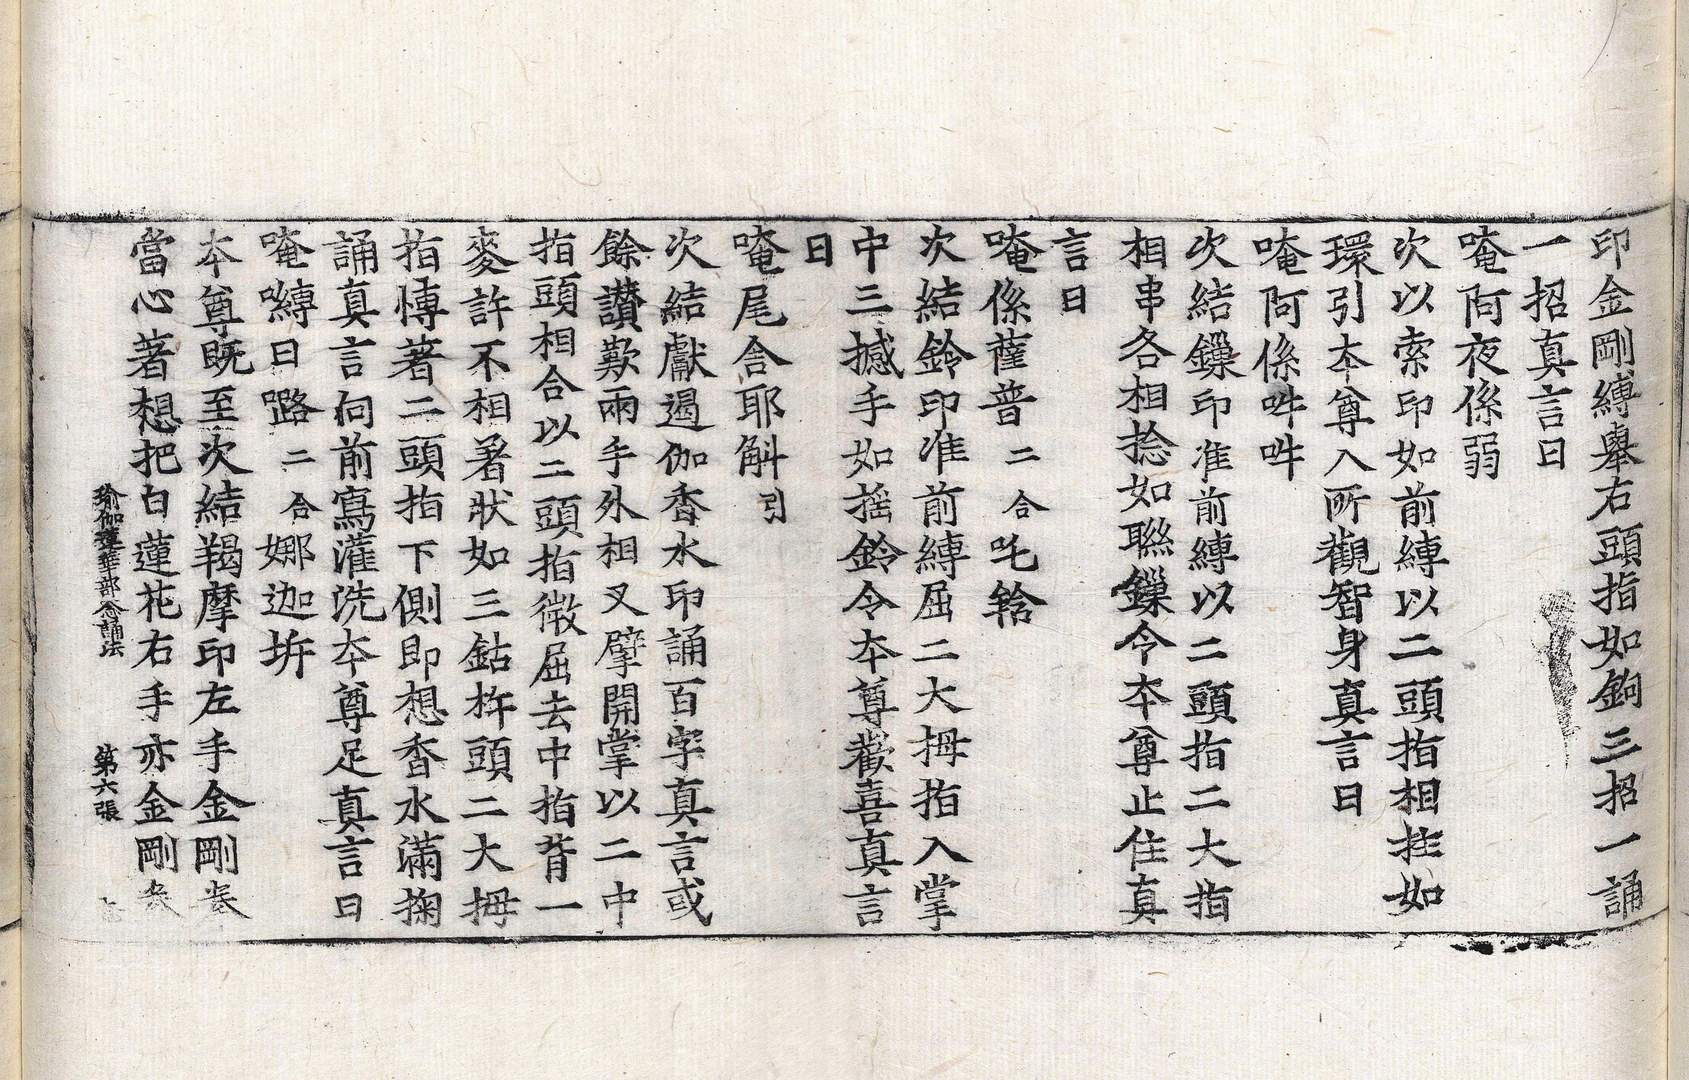 印金剛縛舉右頭指如鉤三招一誦
一招真言曰
唵阿夜係弱
次以索印如前縛以二頭指相拄如
環引本尊入所觀智身真言曰
唵阿係吽吽
次結鏁印准前縛以二頭指二大指
相串各相捻如聮鏁令本尊止住真
言曰
唵係薩普二合吒鍂
次結鈴印准前縛屈二大拇指入掌
中三撼手如搖鈴令本尊歡喜真言
曰
唵尾舍耶斛引
次結獻遏伽香水印誦百字真言或
餘讚歎兩手外相叉擘開掌以二中
指頭相合以二頭指微屈去中指背一
麥許不相著狀如三鈷杵頭二大拇
指愽著二頭指下側即想香水滿掬
誦真言向前寫灌洗本尊足真言曰
唵嚩日囉二合娜迦坼
本尊旣至次結羯摩印左手金剛拳
當心著想把白蓮花右手亦金剛拳
瑜伽蓮華部念誦法 第六張